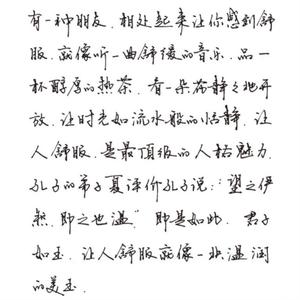 有一种朋友，相处起来让你感到舒
服，就像听一曲舒缓的音乐，品一
杯醇厚的热茶，看一朵花静静地开
放，让时光如流水般的恬静，让
人舒服，是最顶级的人格魅力，
孔子的弟子夏评价孔子说：“望之伊
然，即之也温”即是如此，君子
如玉，让人舒服就像一块温润
的美玉。